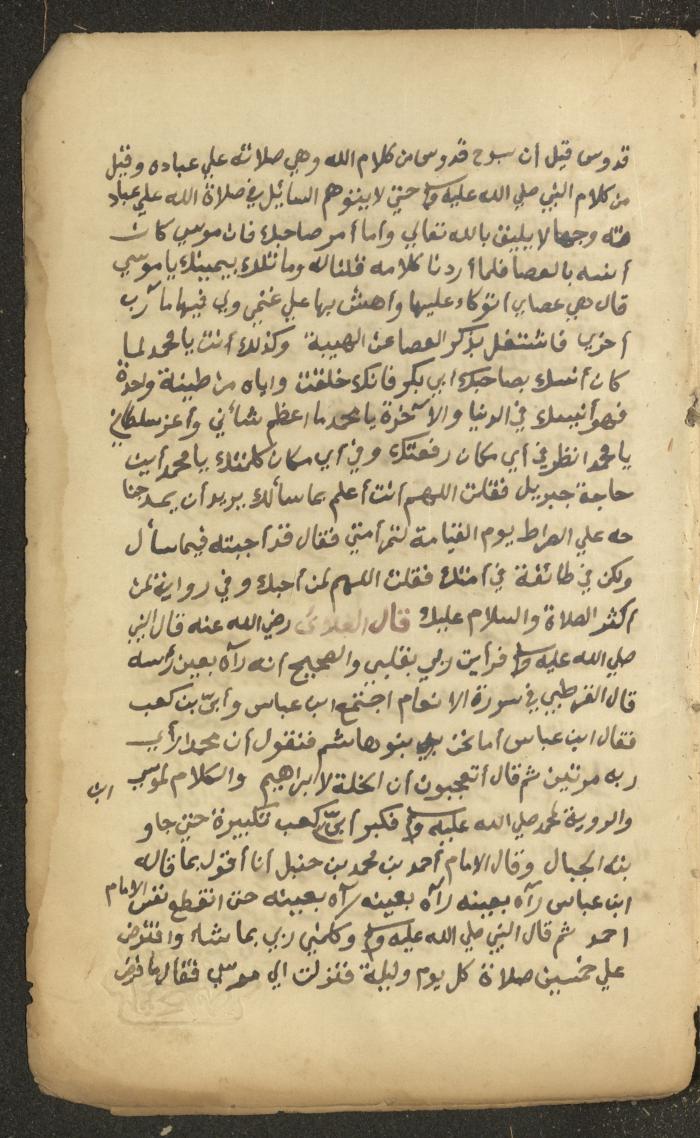 قدوس قيل أن سبوح قدوس من كلام الله وهي صلاته علي عباده وقيل
من كلام النبي صلي الله عليه وسلم حتي لا يتوهم السائل في صلاة الله علي عباد
وجها لا يليق بالله تعالي وأما أمر صاحبك فان موسي كان
أنسه بالعصا فلما أردنا كلامه قلنا له وما تلك بيمينك يا موسي
قال هي عصاي اتوكاء عليها وأهش بها علي غنمي ولي فيها مآرب
أخري فاشتغل بذكر العصا عن الهيبة وكذلك أنت يا محمد لما
كان أنسك بصاحبك أبي بكر فانك خلقت واياه من طينة واحدة
فهو أنيسك في الدنيا والآخرة يا محمد ما اعظم شأني وأعز سلطاني
يا محمد انظر في أي مكان رفعتك وفي أي مكان كلمتك يا محمد أين
حاجة جبريل فقلت اللهم انت أعلم بما سألك يريد أن يمد جنا
حه علي الصراط يوم القيامة لتمر أمتي فقال قد أجبته فيما سأل
ولكن في طائفة في أمتك فقلت اللهم لمن أحبك وفي رواية لمن
أكثر الصلاة والسلام عليك قال العلائي رضي الله عنه قال النبي
صلي الله عليه وسلم فرأيت ربي بقلبي والصحيح انه رآه بعين رأسه
قال القرطبي في سورة الانعام اجتمع ابن عباس وأبيّ بن كعب
فقال ابن عباس أما نحن بنو هاشم فنقول أن محمدا رأي
ربه مرتين ثم قال أتعجبون أن الخلة لابراهيم والكلام لموسي
والروية لمحمد صلي الله عليه وسلم فكبر أبيّ بن كعب تكبيرة حتي جاو
بته الجبال وقال الامام أحمد بن محمد بن حنبل أنا أقول بما قاله
ابن عباس رآه بعينه رآه بعينه رآه بعينه حتي انقطع نفس الامام
احمد ثم قال النبي صلي الله عليه وسلم وكلمني ربي بما شاء وافترض
علي خمسين صلاة كل يوم وليلة فنزلت الي موسي فقال ما فرض